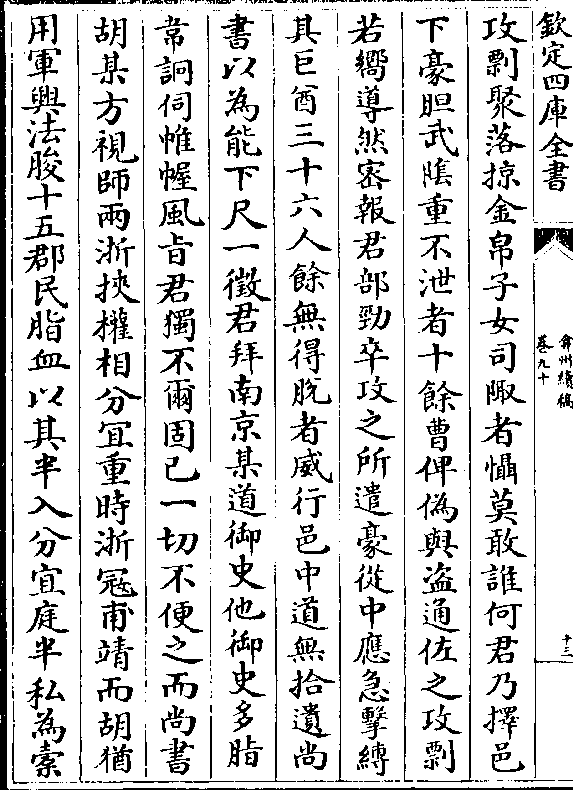 欽定四庫全書
弇州續稿
卷九十
十三
攻剽聚落掠金帛子女司陬者懾莫敢誰何君乃擇邑
下豪胆武隂重不泄者十餘曹俾偽與盗通佐之攻剽
若嚮導然密報君部勁卒攻之所遣豪從中應急擊縛
其巨酋三十六人餘無得脱者威行邑中道無拾遺尚
書以為能下尺一徵君拜南京某道御史他御史多脂
韋詗伺帷幄風㫖君獨不爾固已一切不便之而尚書
胡某方視師兩浙挾權相分宜重時浙冦甫靖而胡猶
用軍興法朘十五郡民脂血以其半入分宜庭半私為索